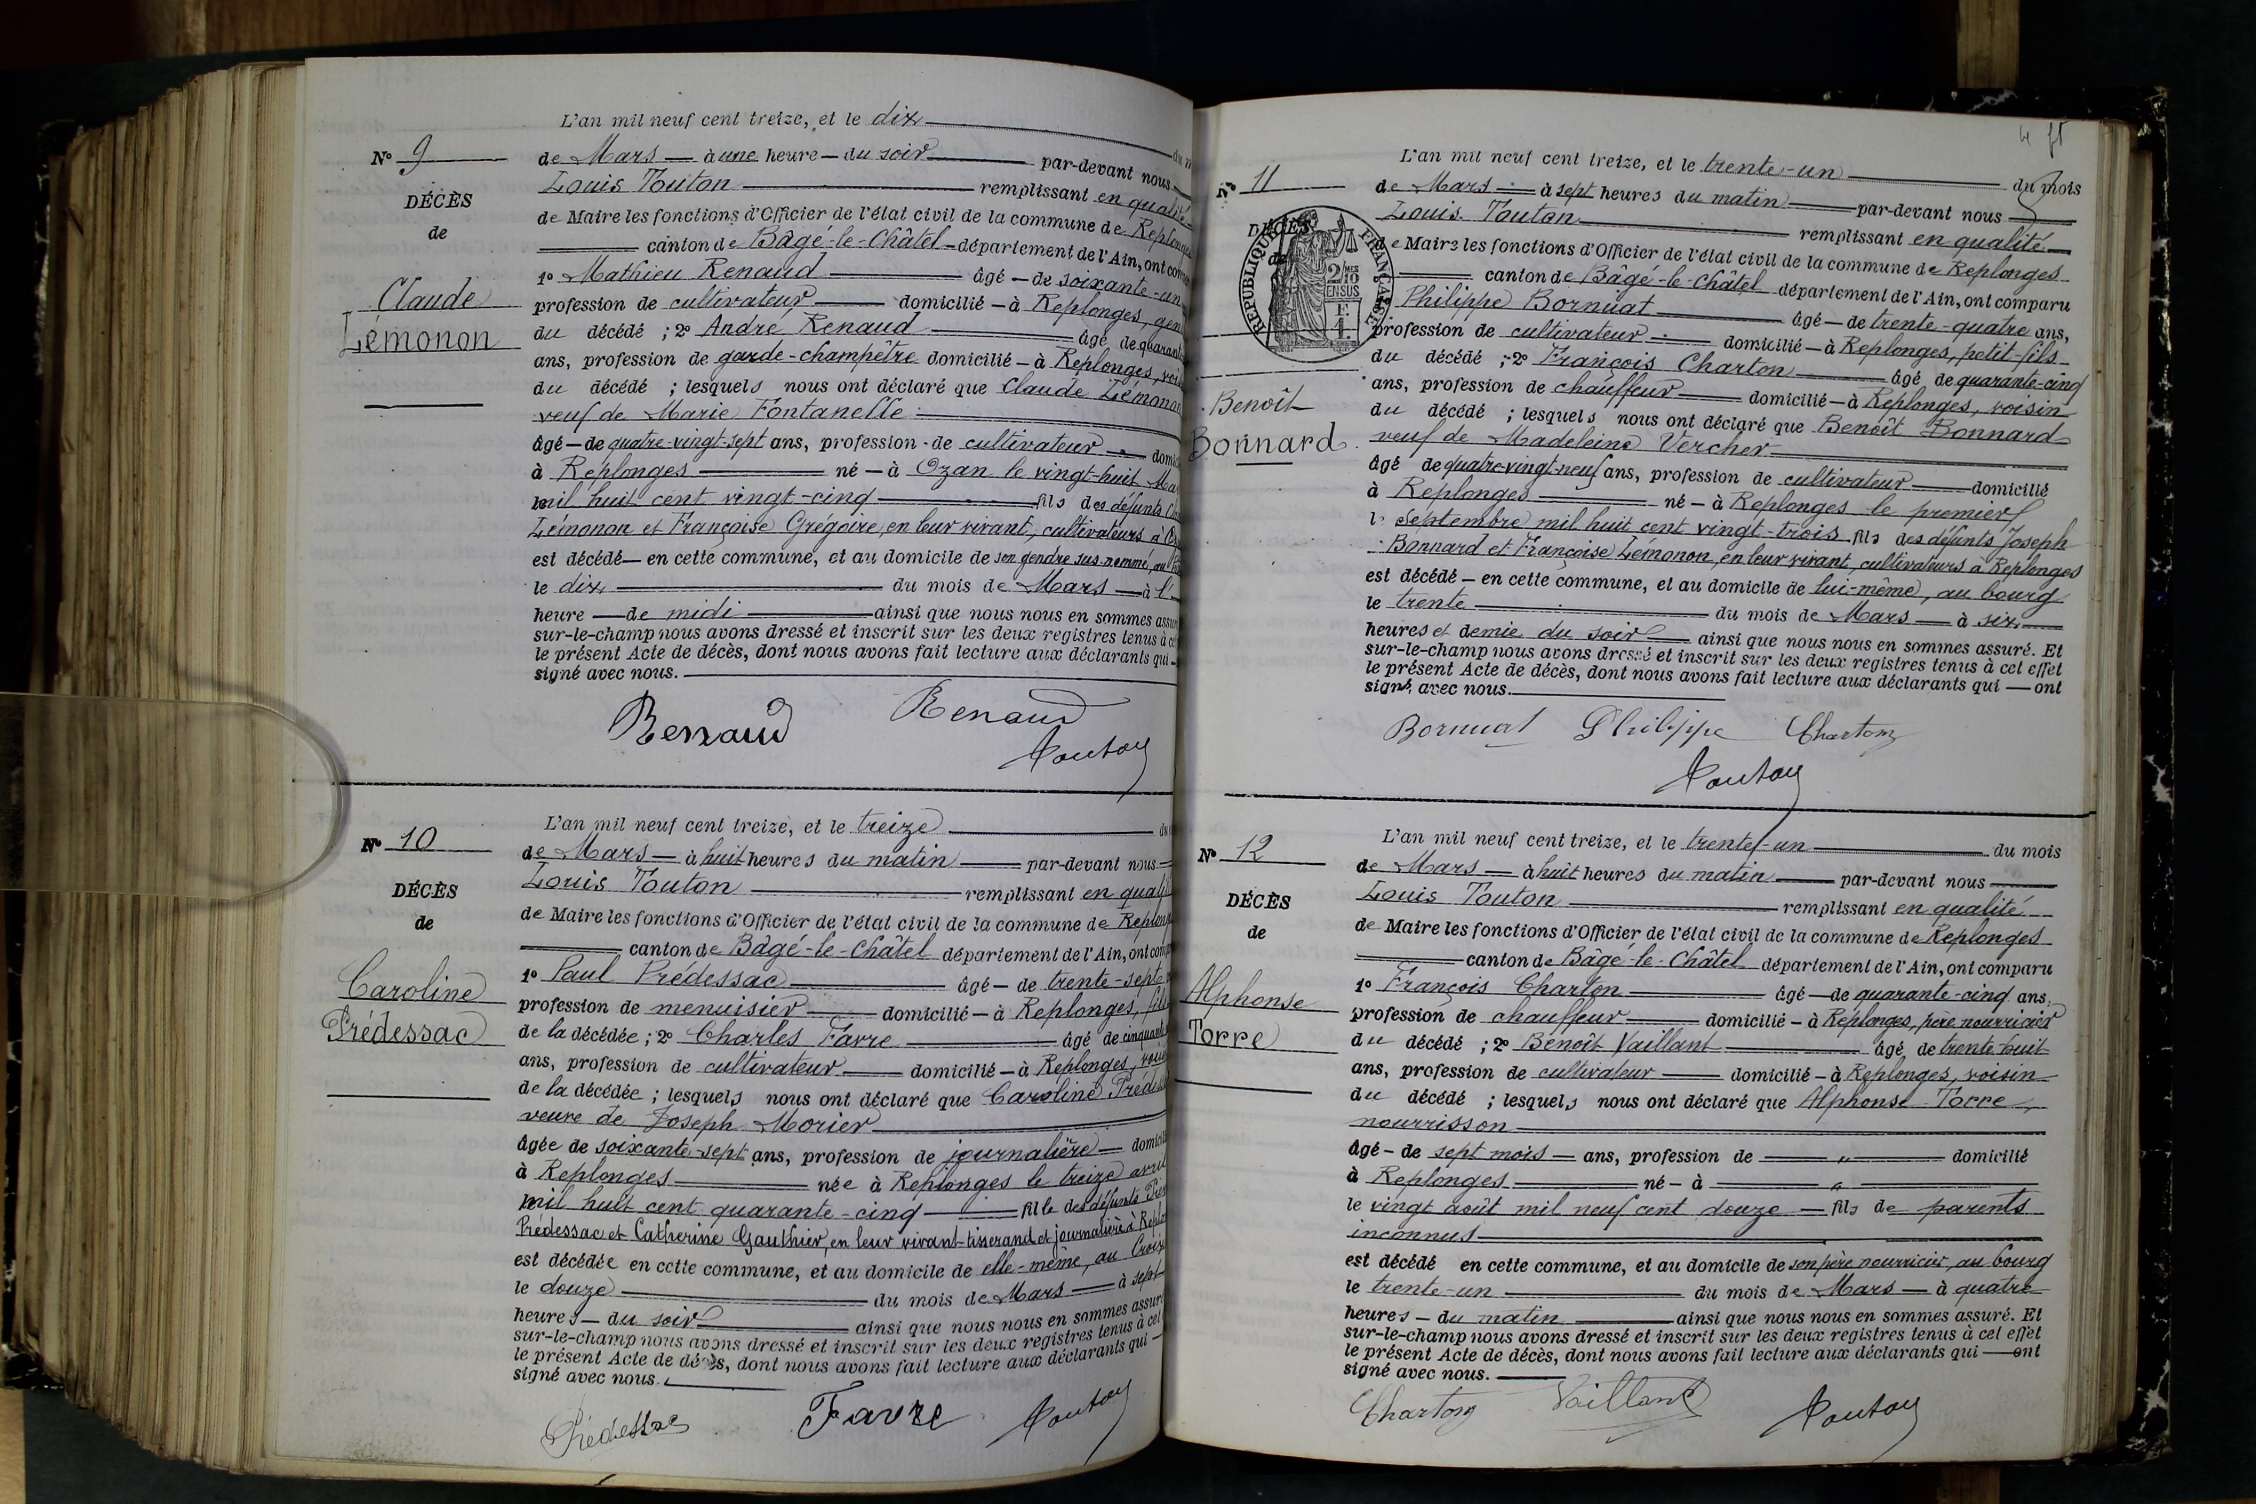 L'an mil neuf cent treize, et le dix
N° 9
de Mars à une heure du soir par-devant nous
Louis Touton remplissant en qualité
DÉCÈS
de Maire les fonctions d'Officier de l'état civil de la commune de Replonges
de
canton de Bâgé-le-Châtel département de l'Ain, ont
1° Mathieu Renaud âgé de soixante-un
Claude
profession de cultivateur domicilié à Replonges,
Lémonon
du décédé ; 2° André Renaud âgé de
ans, profession de garde-champêtre domicilié à Replonges,
du décédé ; lesquels nous ont déclaré que Claude Lémonon
veuf de Marie Fontanelle
âgé de quatre-vingt-sept ans, profession de cultivateur
à Replonges né à Ozan le vingt-huit
mil huit cent vingt-cinq fils des défunts
Lémonon et Françoise Grégoire, en leur vivant, cultivateurs à
est décédé en cette commune, et au domicile de son gendre sus-nommé, au
le dix du mois de Mars à l'
heure de midi ainsi que nous nous en sommes
sur-le-champ nous avons dressé et inscrit sur les deux registres tenus à
le présent Acte de décès, dont nous avons fait lecture aux déclarants qui
signé avec nous.
Renaud Renaud
Touton
L'an mil neuf cent treize, et le treize
N° 10
de Mars à huit heures du matin par-devant nous
Louis Touton remplissant en qualité
DÉCÈS
de Maire les fonctions d'Officier de l'état civil de la commune de
de
canton de Bâgé-le-Châtel département de l'Ain, ont
1° Paul Prédessac âgé de trente-sept
Caroline
profession de menuisier domicilié à Replonges, fils
Prédessac
de la décédée ; 2° Charles Favre âgé de
ans, profession de cultivateur domicilié à Replonges,
de la décédée ; lesquels nous ont déclaré que Caroline
veuve de Joseph Morier
âgée de soixante-sept ans, profession de journalière
à Replonges née à Replonges le treize avril
mil huit cent quarante-cinq fille des défunts
Prédessac et Catherine Gauthier, en leur vivant tisserand et journalière à
est décédée en cette commune, et au domicile de elle-même, au
le douze du mois de Mars à sept
heures du soir ainsi que nous nous en sommes
sur-le-champ nous avons dressé et inscrit sur les deux registres tenus à cet
le présent Acte de décès, dont nous avons fait lecture aux déclarants qui
signé avec nous.
Prédessac Favre Touton
L'an mil neuf cent treize, et le trente-un du mois
N° 11
de Mars à sept heures du matin par-devant nous
Louis Touton remplissant en qualité
DÉCÈS
de
RÉPUBLIQUE FRANÇAISE
2/10 EN SUS
de Maire les fonctions d'Officier de l'état civil de la commune de Replonges
canton de Bâgé-le-Châtel département de l'Ain, ont comparu
Philippe Bornuat âgé de trente-quatre ans,
profession de cultivateur domicilié à Replonges, petit-fils
du décédé ; 2° François Charton âgé de quarante-cinq
Benoît
ans, profession de chauffeur domicilié à Replonges, voisin
Bonnard
du décédé ; lesquels nous ont déclaré que Benoît Bonnard
veuf de Madeleine Vercher
âgé de quatre-vingt-neuf ans, profession de cultivateur domicilié
à Replonges né à Replonges le premier
septembre mil huit cent vingt-trois fils des défunts Joseph
Bonnard et Françoise Lémonon, en leur vivant, cultivateurs à Replonges
est décédé en cette commune, et au domicile de lui-même, au bourg
le trente du mois de Mars à six
heures et demie du soir ainsi que nous nous en sommes assuré. Et
sur-le-champ nous avons dressé et inscrit sur les deux registres tenus à cet effet
le présent Acte de décès, dont nous avons fait lecture aux déclarants qui ont
signé avec nous.
Bornuat Philippe Charton
Touton
L'an mil neuf cent treize, et le trente-un du mois
N° 12
de Mars à huit heures du matin par-devant nous
Louis Touton remplissant en qualité
DÉCÈS
de Maire les fonctions d'Officier de l'état civil de la commune de Replonges
de
canton de Bâgé-le-Châtel département de l'Ain, ont comparu
1° François Charton âgé de quarante-cinq ans,
Alphonse
profession de chauffeur domicilié à Replonges, père nourricier
Torre
du décédé ; 2° Benoît Vaillant âgé de trente huit
ans, profession de cultivateur domicilié à Replonges, voisin
du décédé ; lesquels nous ont déclaré que Alphonse Torre,
nourrisson
âgé de sept mois ans, profession de " domicilié
à Replonges né à "
le vingt août mil neuf cent douze fils de parents
inconnus
est décédé en cette commune, et au domicile de son père nourricier, au bourg
le trente-un du mois de Mars à quatre
heures du matin ainsi que nous nous en sommes assuré. Et
sur-le-champ nous avons dressé et inscrit sur les deux registres tenus à cet effet
le présent Acte de décès, dont nous avons fait lecture aux déclarants qui ont
signé avec nous.
Charton Vaillant Touton